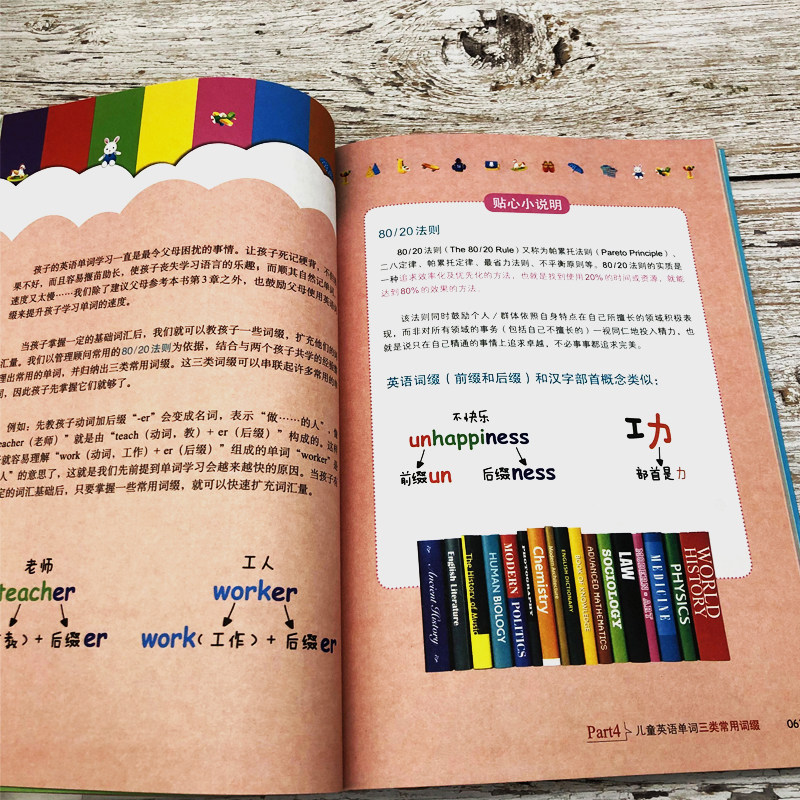 孩子的英语单词学习一直是最令父母困扰的事情。让孩子死记硬背，不
果不好，而且容易揠苗助长，使孩子丧失学习语言的乐趣；而顺其自然记单词
速度又太慢……我们除了建议父母参考本书第3章之外，也鼓励父母使用英语
缀来提升孩子学习单词的速度。
当孩子掌握一定的基础词汇后，我们就可以教孩子一些词缀，扩充他们的
汇量。我们以管理顾问常用的80/20法则为依据，结合与两个孩子共学的经验
理出常用的单词，并归纳出三类常用词缀。这三类词缀可以串联起许多常用的
词，因此孩子先掌握它们就够了。
例如：先教孩子动词加后缀“-er”会变成名词，表示“做……的人”，
teacher（老师）”就是由“teach（动词，教）+ er（后缀）”构成的。这样
就容易理解“work（动词，工作）+ er（后缀）”组成的单词“worker”
人”的意思了，这就是我们先前提到单词学习会越来越快的原因。当孩子
定的词汇基础后，只要掌握一些常用词缀，就可以快速扩充词汇量。
老师 工人
teacher worker
教）+ 后缀er work（工作）+ 后缀er
贴心小说明
80/20法则
80/20法则（The 80/20 Rule）又称为帕累托法则（Pareto Principle）、
二八定律、帕累托定律、最省力法则、不平衡原则等。80/20法则的实质是
一种追求效率化及优先化的方法，也就是找到使用20%的时间或资源，就能
达到80%的效果的方法。
该法则同时鼓励个人/群体依照自身特点在自己所擅长的领域积极表
现，而非对所有领域的事务（包括自己不擅长的）一视同仁地投入精力，也
就是说只在自己精通的事情上追求卓越，不必事事都追求完美。
英语词缀（前缀和后缀）和汉字部首概念类似：
不快乐
unhappiness
前缀un 后缀ness
功
部首是力
Ancient History
English Literature
The History of Music
HUMAN BIOLOGY
MODERN POLITICS
PHOTOGRAPHY
Chemistry
ENGLISH DICTIONARY
BOOK OF KNOWLEDGE
ADVANCED MATHEMATICS
SOCIOLOGY
LAW
MEDICINE
PHYSICS
WORLD HISTORY
Part4 儿童英语单词三类常用词缀 06